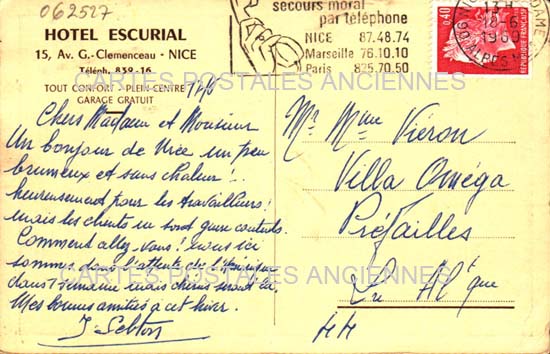 062527
HOTEL ESCURIAL
15, Av. G.-Clemenceau - NICE
Téléph. 859-16
TOUT CONFORT - PLEIN-CENTRE
GARAGE GRATUIT
secours moral
par téléphone
NICE 87.48.74
Marseille 76.10.10
Paris 825.70.50
13H
18-6
1969
0,40
REPUBLIQUE FRANÇAISE
CARTES POSTALES ANCIENNES
Chers Madame et Monsieur
Un bonjour de Nice un peu
brumeux et sans chaleur!..
heureusement pour les travailleurs!
mais les clients en sont guère contents.
Comment allez-vous! nous ici
sommes dans l'attente de
dans 1 semaine mais chérie serait là.
Mes bonnes amitiés à cet hiver.
Mr Mme Viéron
Villa Oméga
Préfailles
Lre Atlque
44
CARTES POSTALES ANCIENNES
CARTES POSTALES ANCIENNES